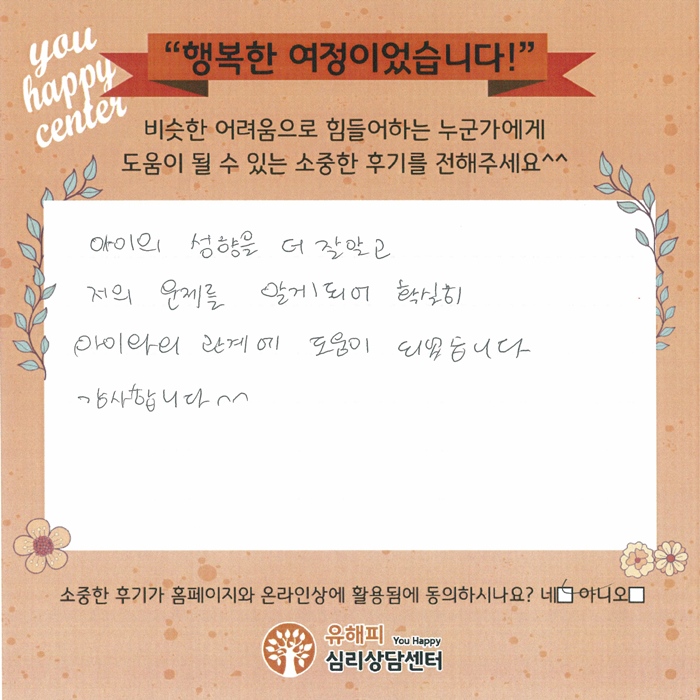 you
happy
center
“행복한 여정이었습니다!”
비슷한 어려움으로 힘들어하는 누군가에게
도움이 될 수 있는 소중한 후기를 전해주세요^^
아이의 성향을 더 잘알고
저의 문제를 알게되어 확실히
아이와의 관계에 도움이 되었습니다
감사합니다^^
소중한 후기가 홈페이지와 온라인상에 활용됨에 동의하시나요? 네☑ 아니오□
유해피 You Happy
심리상담센터